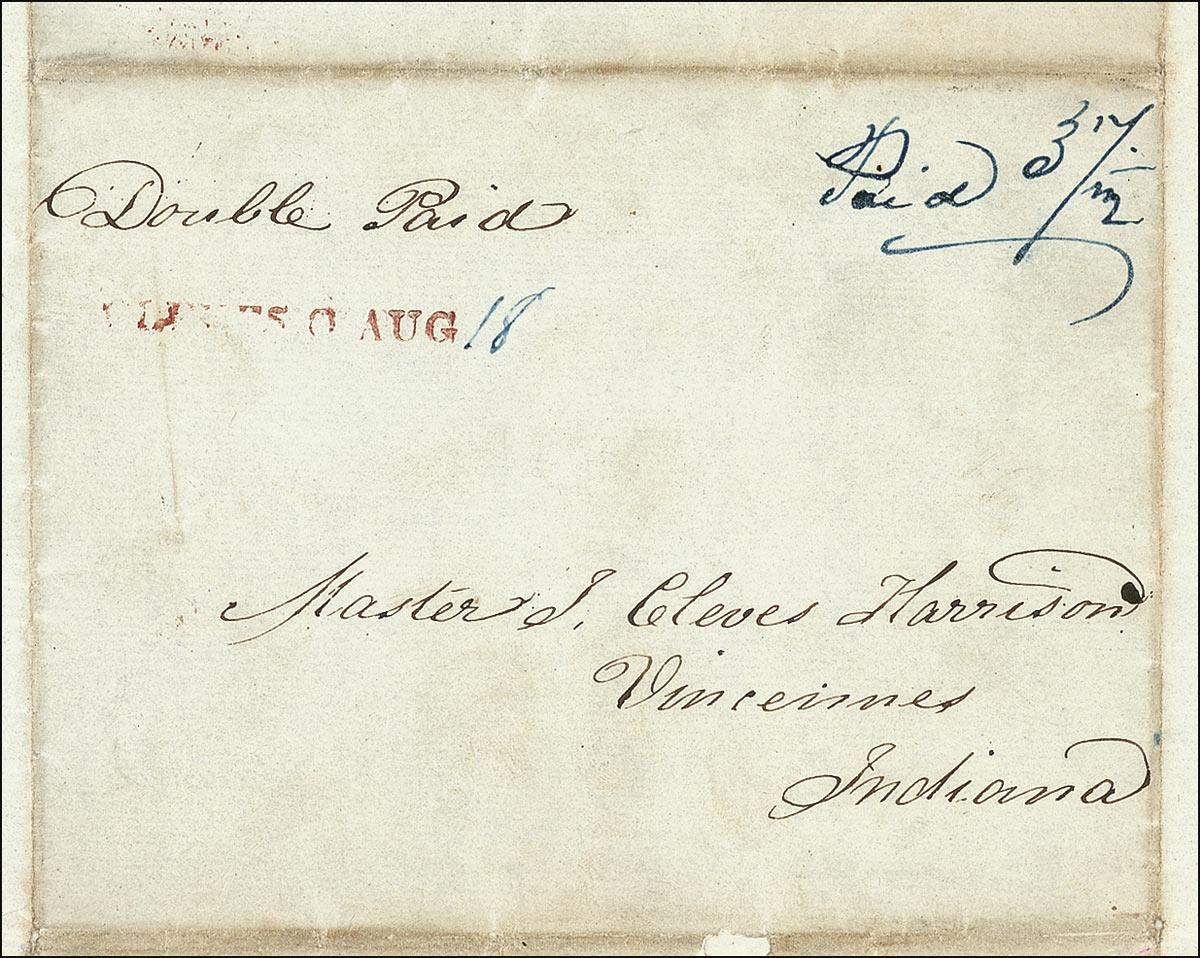 Double Paid
Paid 37 1/2
CLEVES O AUG 18
Master J. Cleves Harrison
Vincennes
Indiana